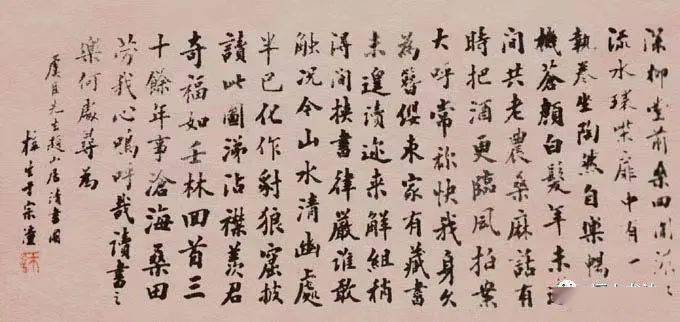 深柳堂前桑田
流水環柴扉中有一
執卷坐陶然自樂
機蒼顏白髮年未
間共老農桑麻話有
時把酒更臨風拍案
大呼常祢快我身久
為簪纓束家有藏書
未遑讀邇来解組稍
得閒挾書律嚴誰敢
触況今山水清幽處
半已化作豺狼窟披
讀此圖涕沾襟羨君
奇福如壬林回首三
十餘年事滄海桑田
勞我心嗚呼哉讀書之
樂何處尋為
虞臣先生題山居讀書圖
梓生于宗潼